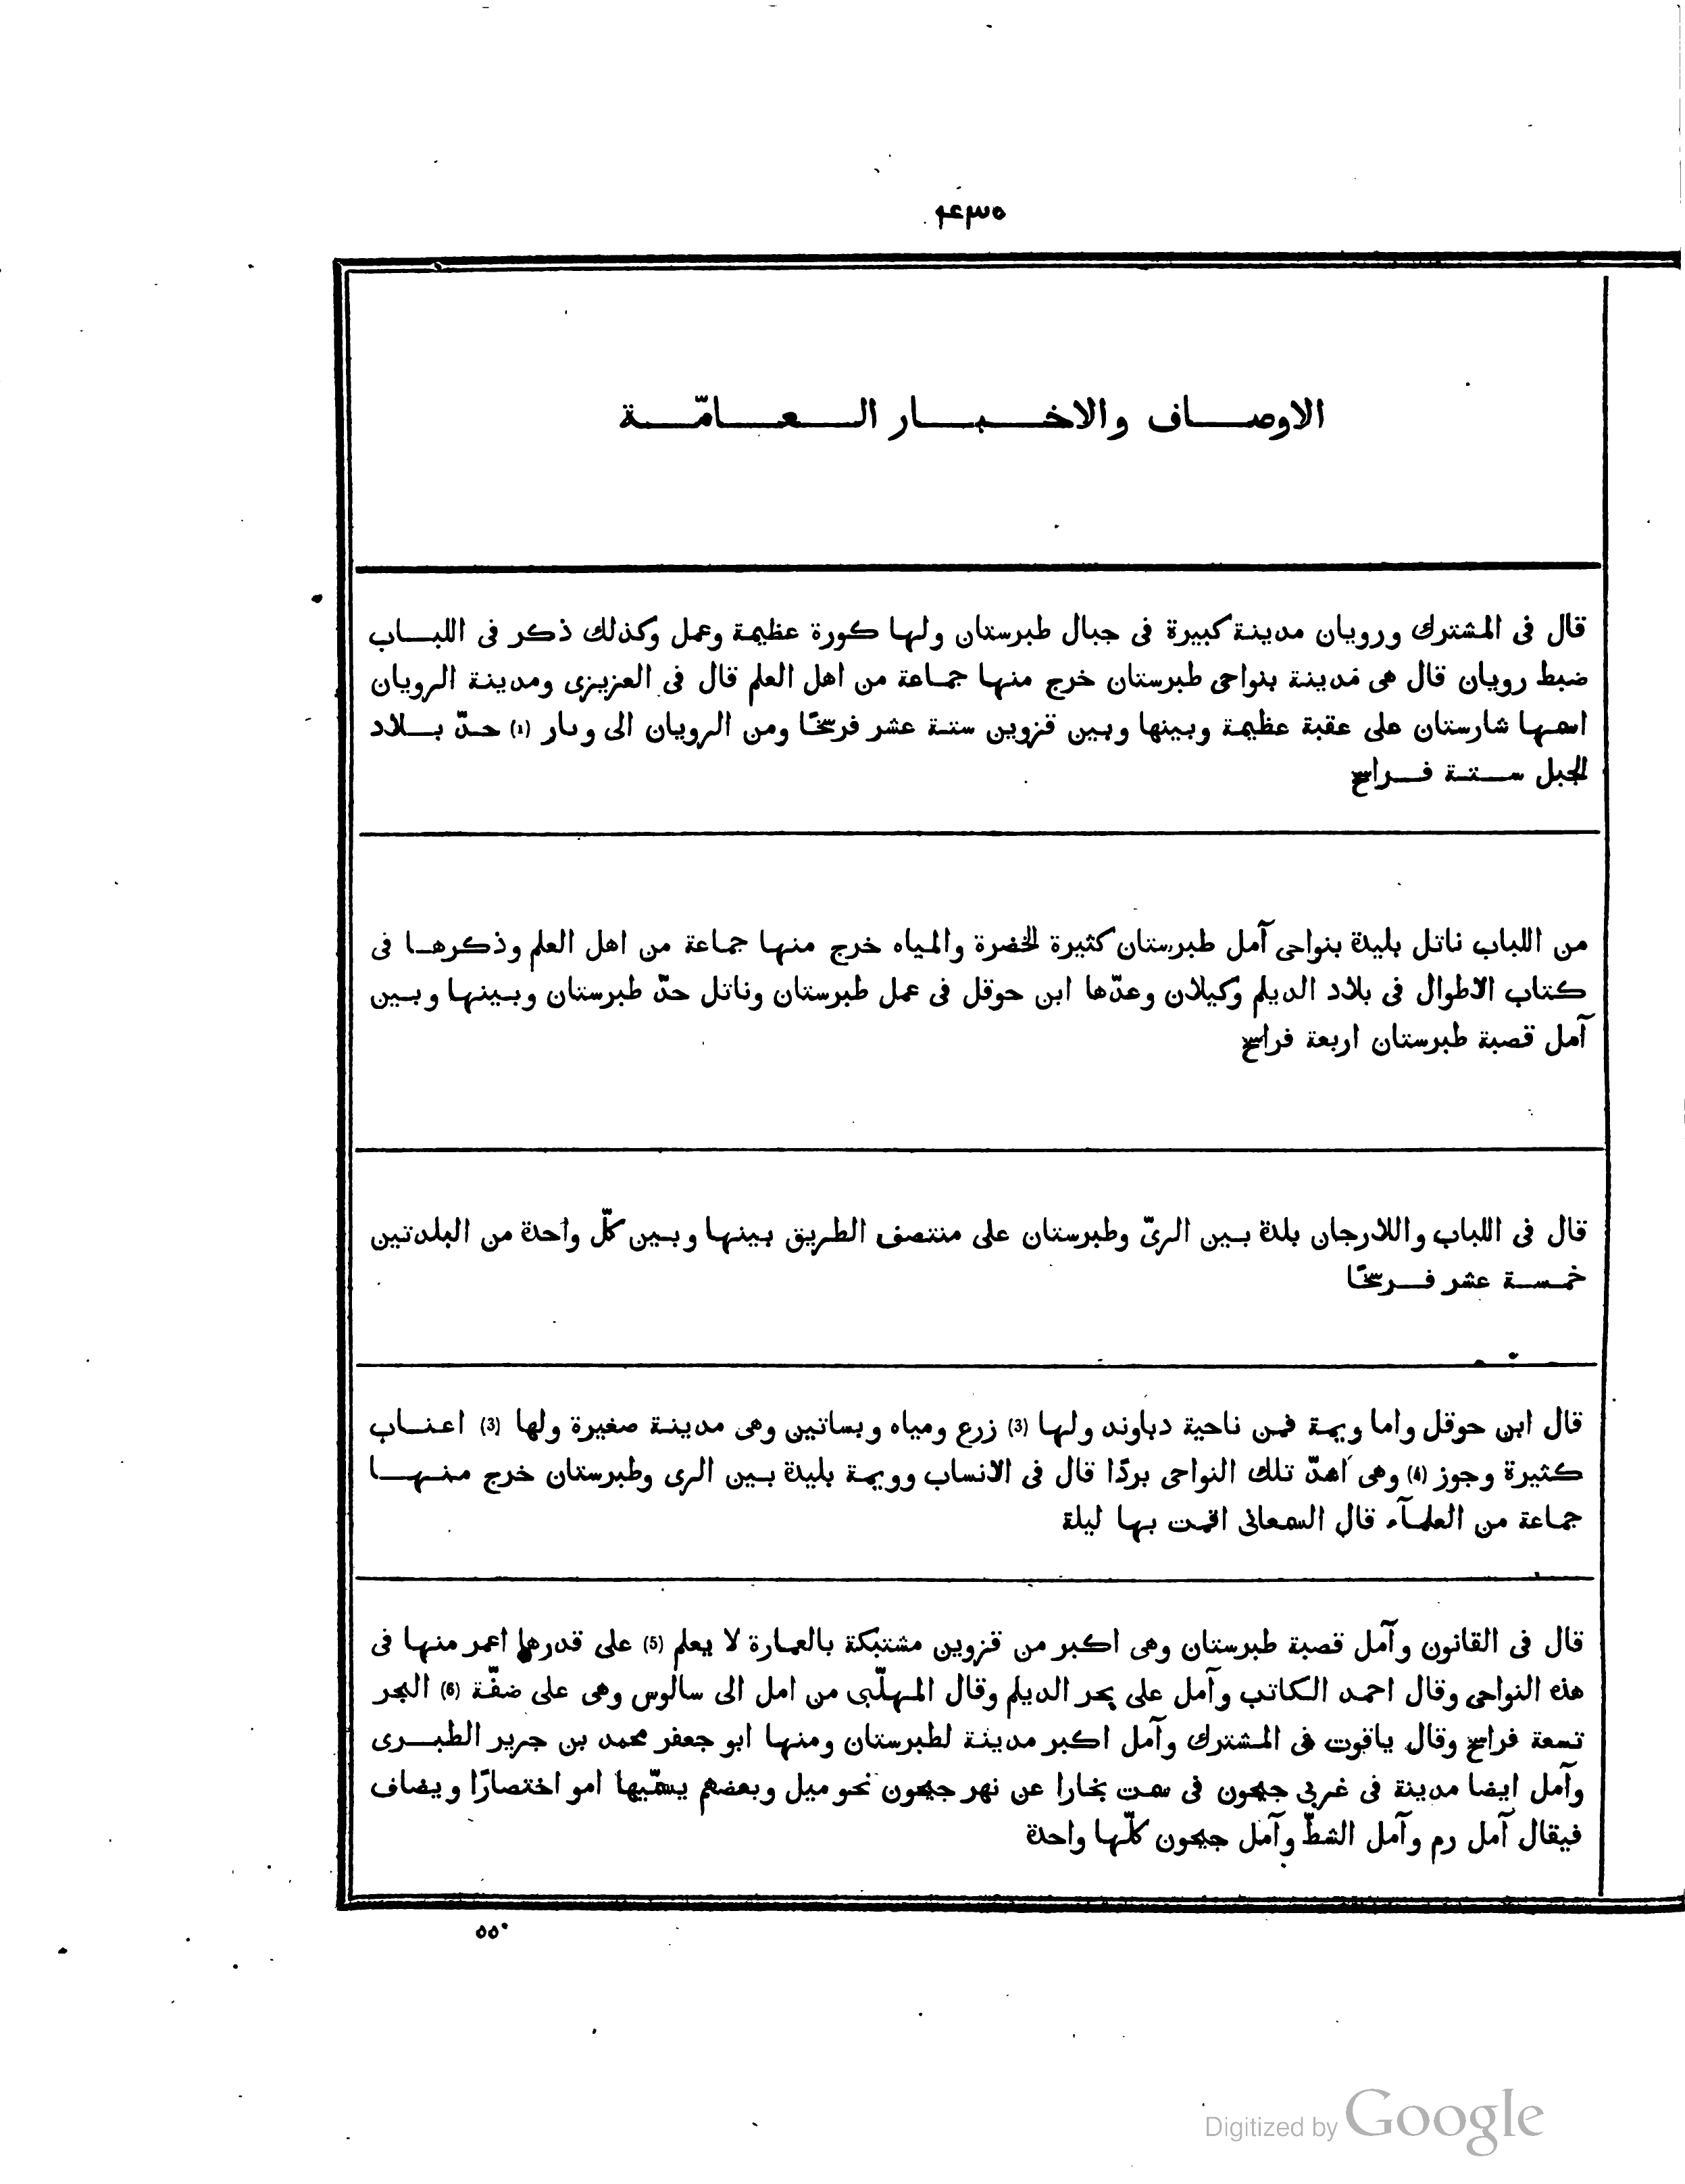 ٤٣٥
الاوصاف والاخبار العامّة
قال فى المشترك ورويان مدينة كبيرة فى جبال طبرستان ولها كورة عظيمة وعمل وكذلك ذكر فى اللباب
ضبط رويان قال هى مدينة بنواحى طبرستان خرج منها جماعة من اهل العلم قال فى العزيزى ومدينة الرويان
اسمها شارستان على عقبة عظيمة وبينها وبين قزوين ستة عشر فرسخًا ومن الرويان الى (1) حدّ بلاد
الجبل ستة فراسخ
من اللباب ناتل بليدة بنواحى آمل طبرستان كثيرة الخضرة والمياه خرج منها جماعة من اهل العلم وذكرها فى
كتاب الاطوال فى بلاد الديلم وكيلان وعدّها ابن حوقل فى عمل طبرستان وناتل حدّ طبرستان وبينها وبين
آمل قصبة طبرستان اربعة فراسخ
قال فى اللباب واللارجان بلدة بين الرىّ وطبرستان على منتصف الطريق بينها وبين كلّ واحدة من البلدتين
خمسة عشر فرسخًا
قال ابن حوقل واما ويمة فمن ناحية دباوند ولها (3) زرع ومياه وبساتين وهى مدينة صغيرة ولها (3) اعناب
كثيرة وجوز (4) وهى اشدّ تلك النواحى بردًا قال فى الانساب وويمة بليدة بين الرى وطبرستان خرج منها
جماعة من العلمآء قال السمعانى اقمت بها ليلة
قال فى القانون وآمل قصبة طبرستان وهى اكبر من قزوين مشتبكة بالعمارة لا يعلم (5) على قدرها اعمر منها فى
هذه النواحى وقال احمد الكاتب وآمل على بحر الديلم وقال المهلّبى من امل الى سالوس وهى على ضفّة (6) البحر
تسعة فراسخ وقال ياقوت فى المشترك وآمل اكبر مدينة لطبرستان ومنها ابو جعفر محمد بن جرير الطبرى
وآمل ايضا مدينة فى غربى جيحون فى سمت بخارا عن نهر جيحون نحو ميل وبعضهم يسمّيها امو اختصارًا ويضاف
فيقال آمل رم وآمل الشطّ وآمل جيحون كلّها واحدة
٥٥٠
Digitized by Google